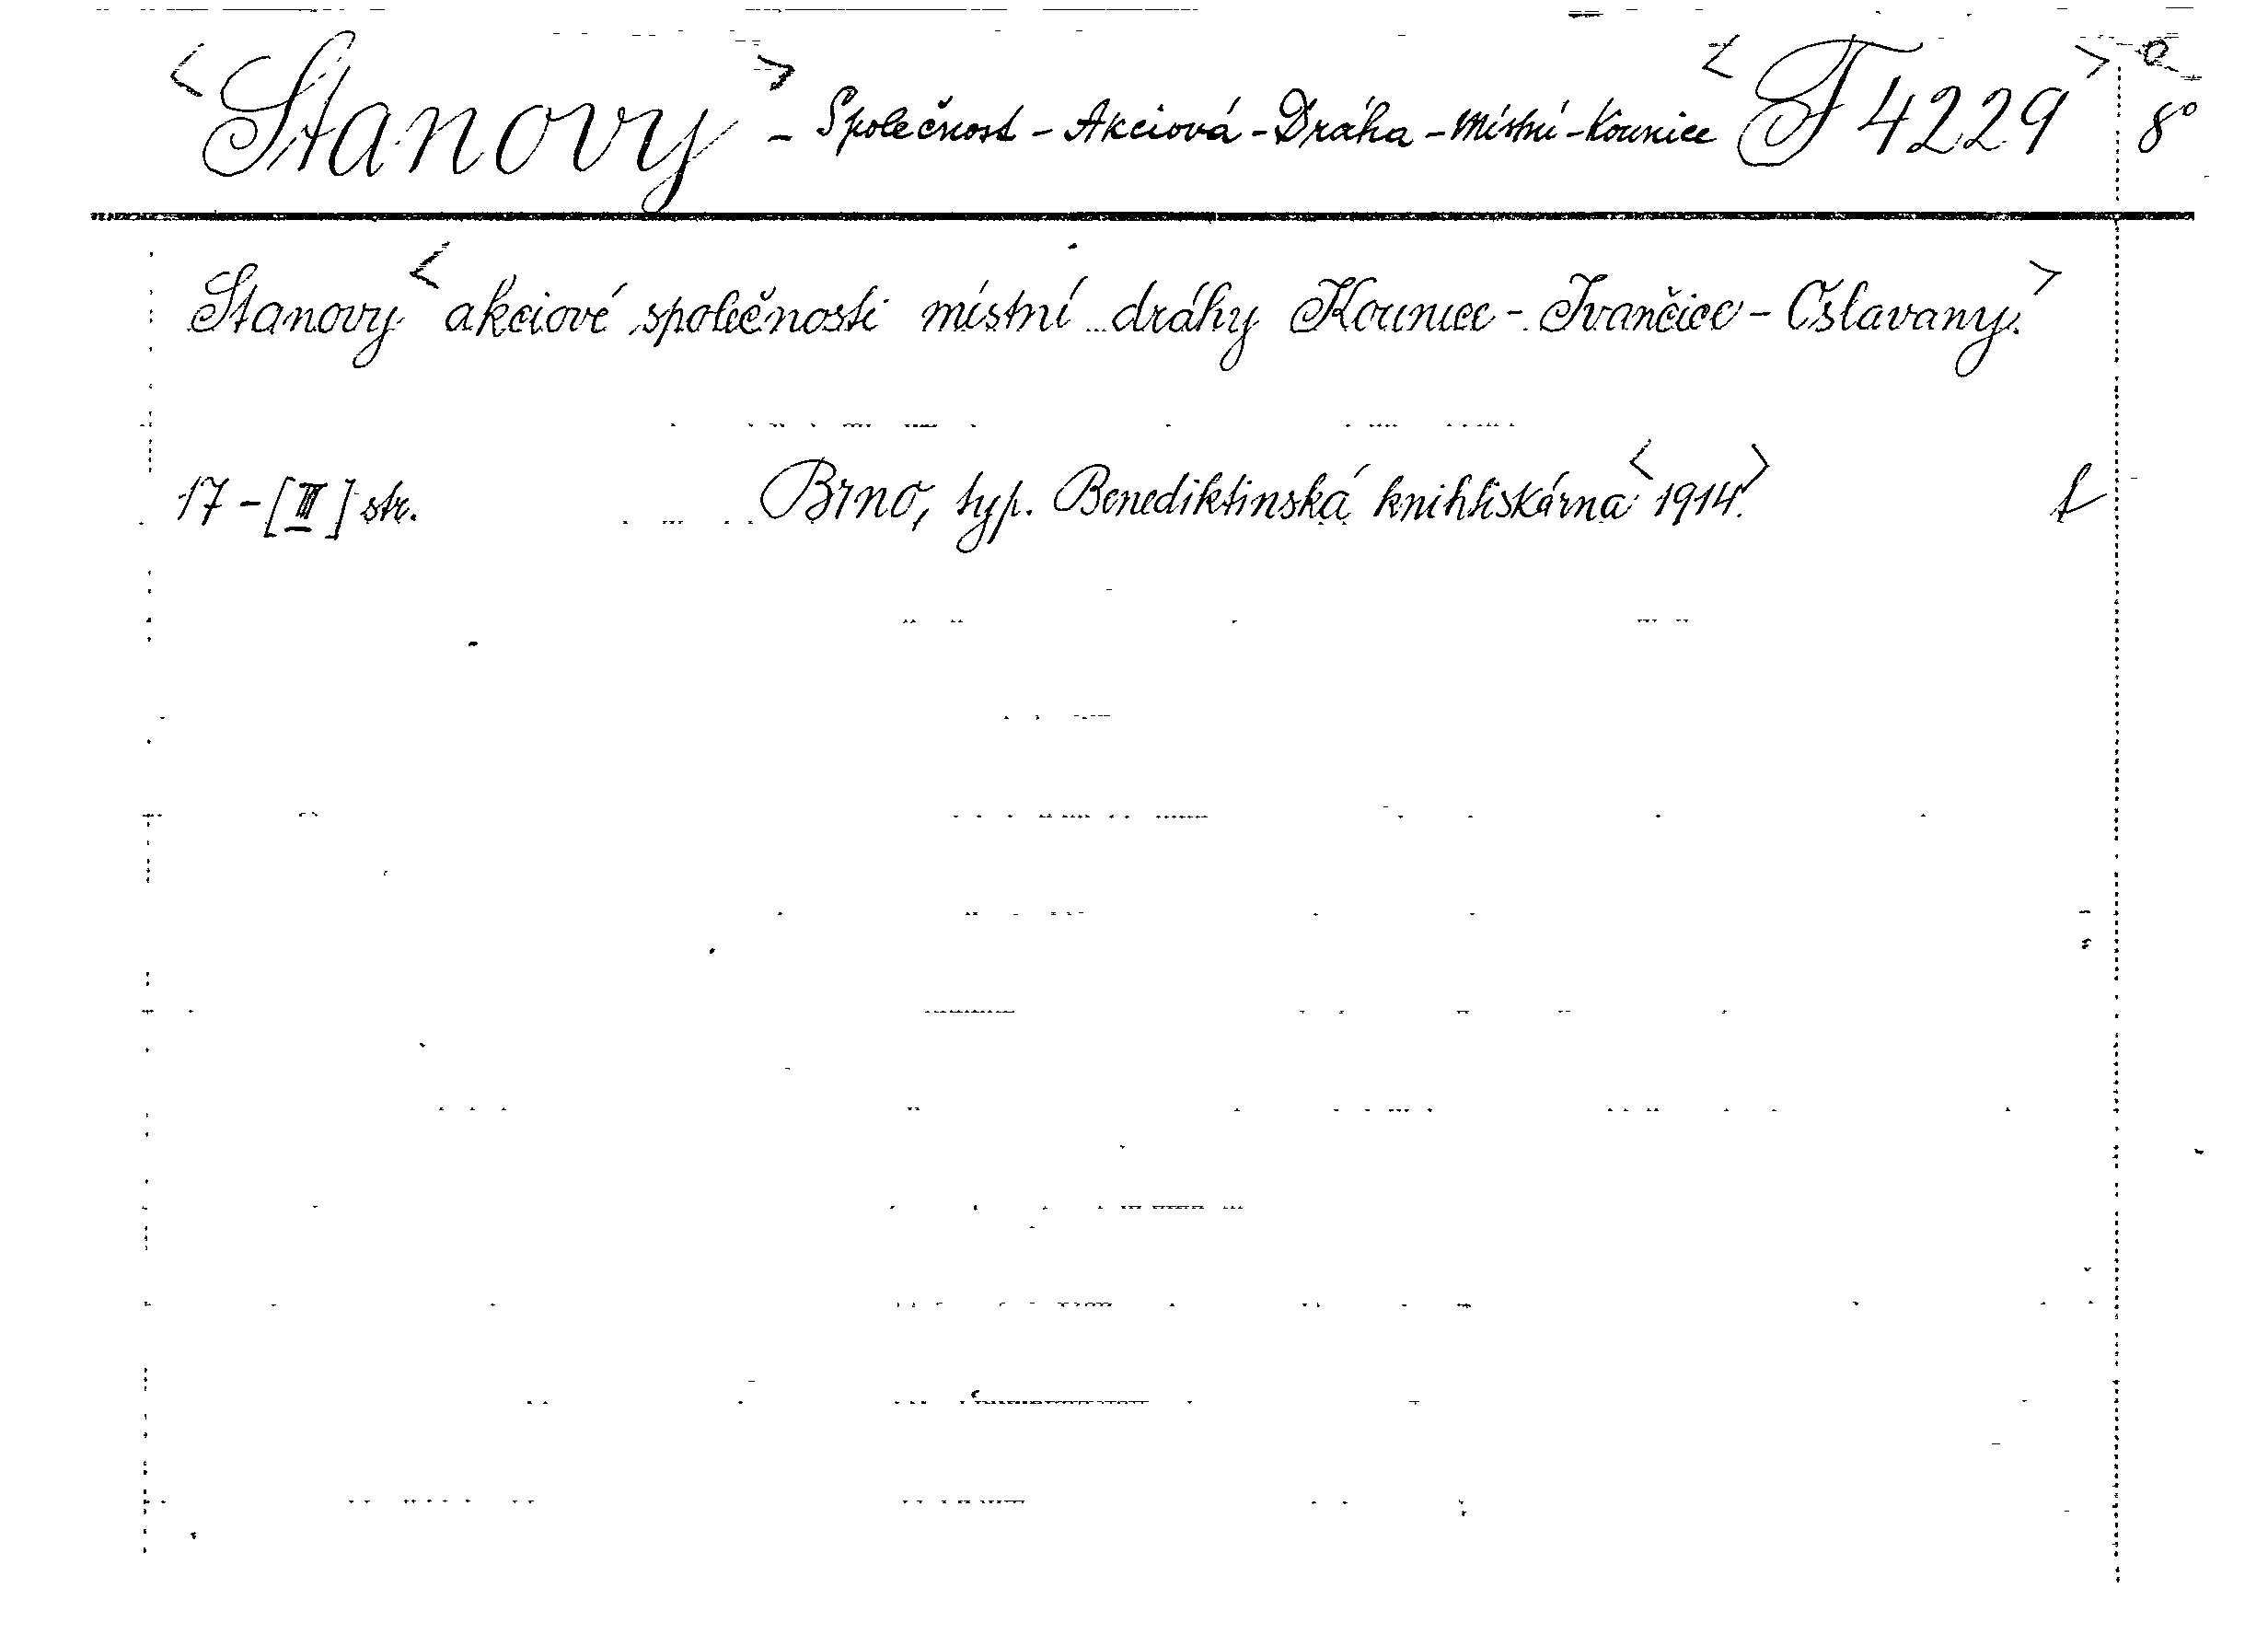 <Stanovy> - Společnost - Akciová - Dráha - Místní - Kounice <F 4229> 8°
Stanovy <akciové společnosti místní dráhy Kounice - Ivančice - Oslavany.>
17 - [III] str. Brno, typ. Benediktinská knihtiskárna <1914.>